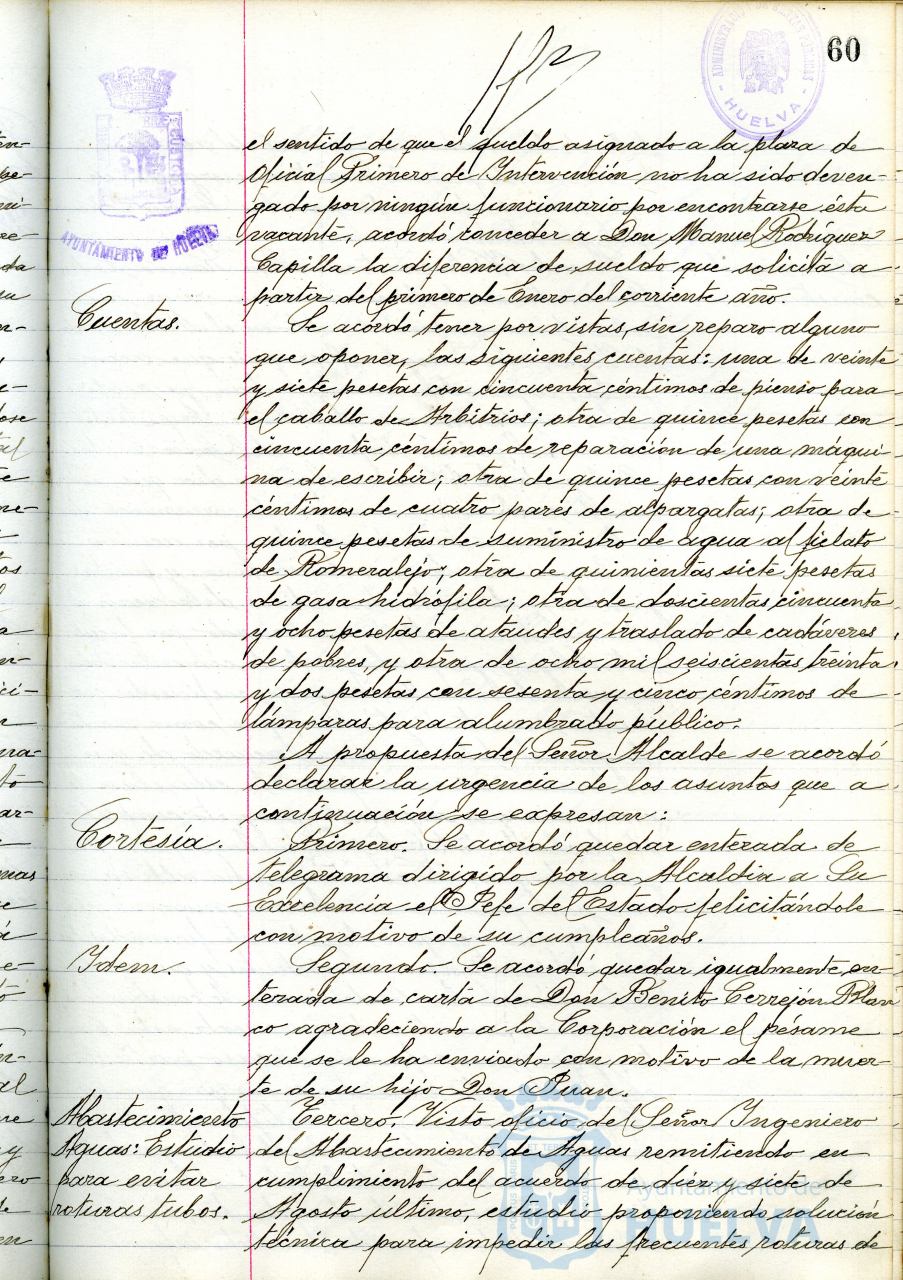 60
ADMINISTRACION DE RENTAS PUBLICAS
HUELVA
AYUNTAMIENTO DE HUELVA
el sentido de que el sueldo asignado a la plaza de
Oficial Primero de Intervención no ha sido deven-
gado por ningún funcionario por encontrarse ésta
vacante, acordó conceder a Don Manuel Rodríguez
Capilla la diferencia de sueldo que solicita a
partir del primero de Enero del corriente año.
Cuentas.
Se acordó tener por vistas, sin reparo alguno
que oponer, las siguientes cuentas: una de veinte
y siete pesetas con cincuenta céntimos de pienso para
el caballo de Arbitrios; otra de quince pesetas con
cincuenta céntimos de reparación de una máqui-
na de escribir; otra de quince pesetas con veinte
céntimos de cuatro pares de alpargatas; otra de
quince pesetas de suministro de agua al fielato
de Romeralejo; otra de quinientas siete pesetas
de gasa hidrófila; otra de doscientas cincuenta
y ocho pesetas de ataudes y traslado de cadáveres
de pobres, y otra de ocho mil seiscientas treinta
y dos pesetas con sesenta y cinco céntimos de
lámparas para alumbrado público.
A propuesta del Señor Alcalde se acordó
declarar la urgencia de los asuntos que a
continuación se expresan:
Cortesía.
Primero. Se acordó quedar enterada de
telegrama dirigido por la Alcaldia a Su
Excelencia el Jefe del Estado felicitándole
con motivo de su cumpleaños.
Idem.
Segundo. Se acordó quedar igualmente en-
terada de carta de Don Benito Cerrejón Blan
co agradeciendo a la Corporación el pésame
que se le ha enviado con motivo de la muer-
te de su hijo Don Juan.
Abastecimiento
Aguas: Estudio
para evitar
roturas tubos.
Tercero. Visto oficio del Señor Ingeniero
del Abastecimiento de Aguas remitiendo en
cumplimiento del acuerdo de diez y siete de
Agosto último, estudio proponiendo solución
técnica para impedir las frecuentes roturas de
Ayuntamiento de
HUELVA